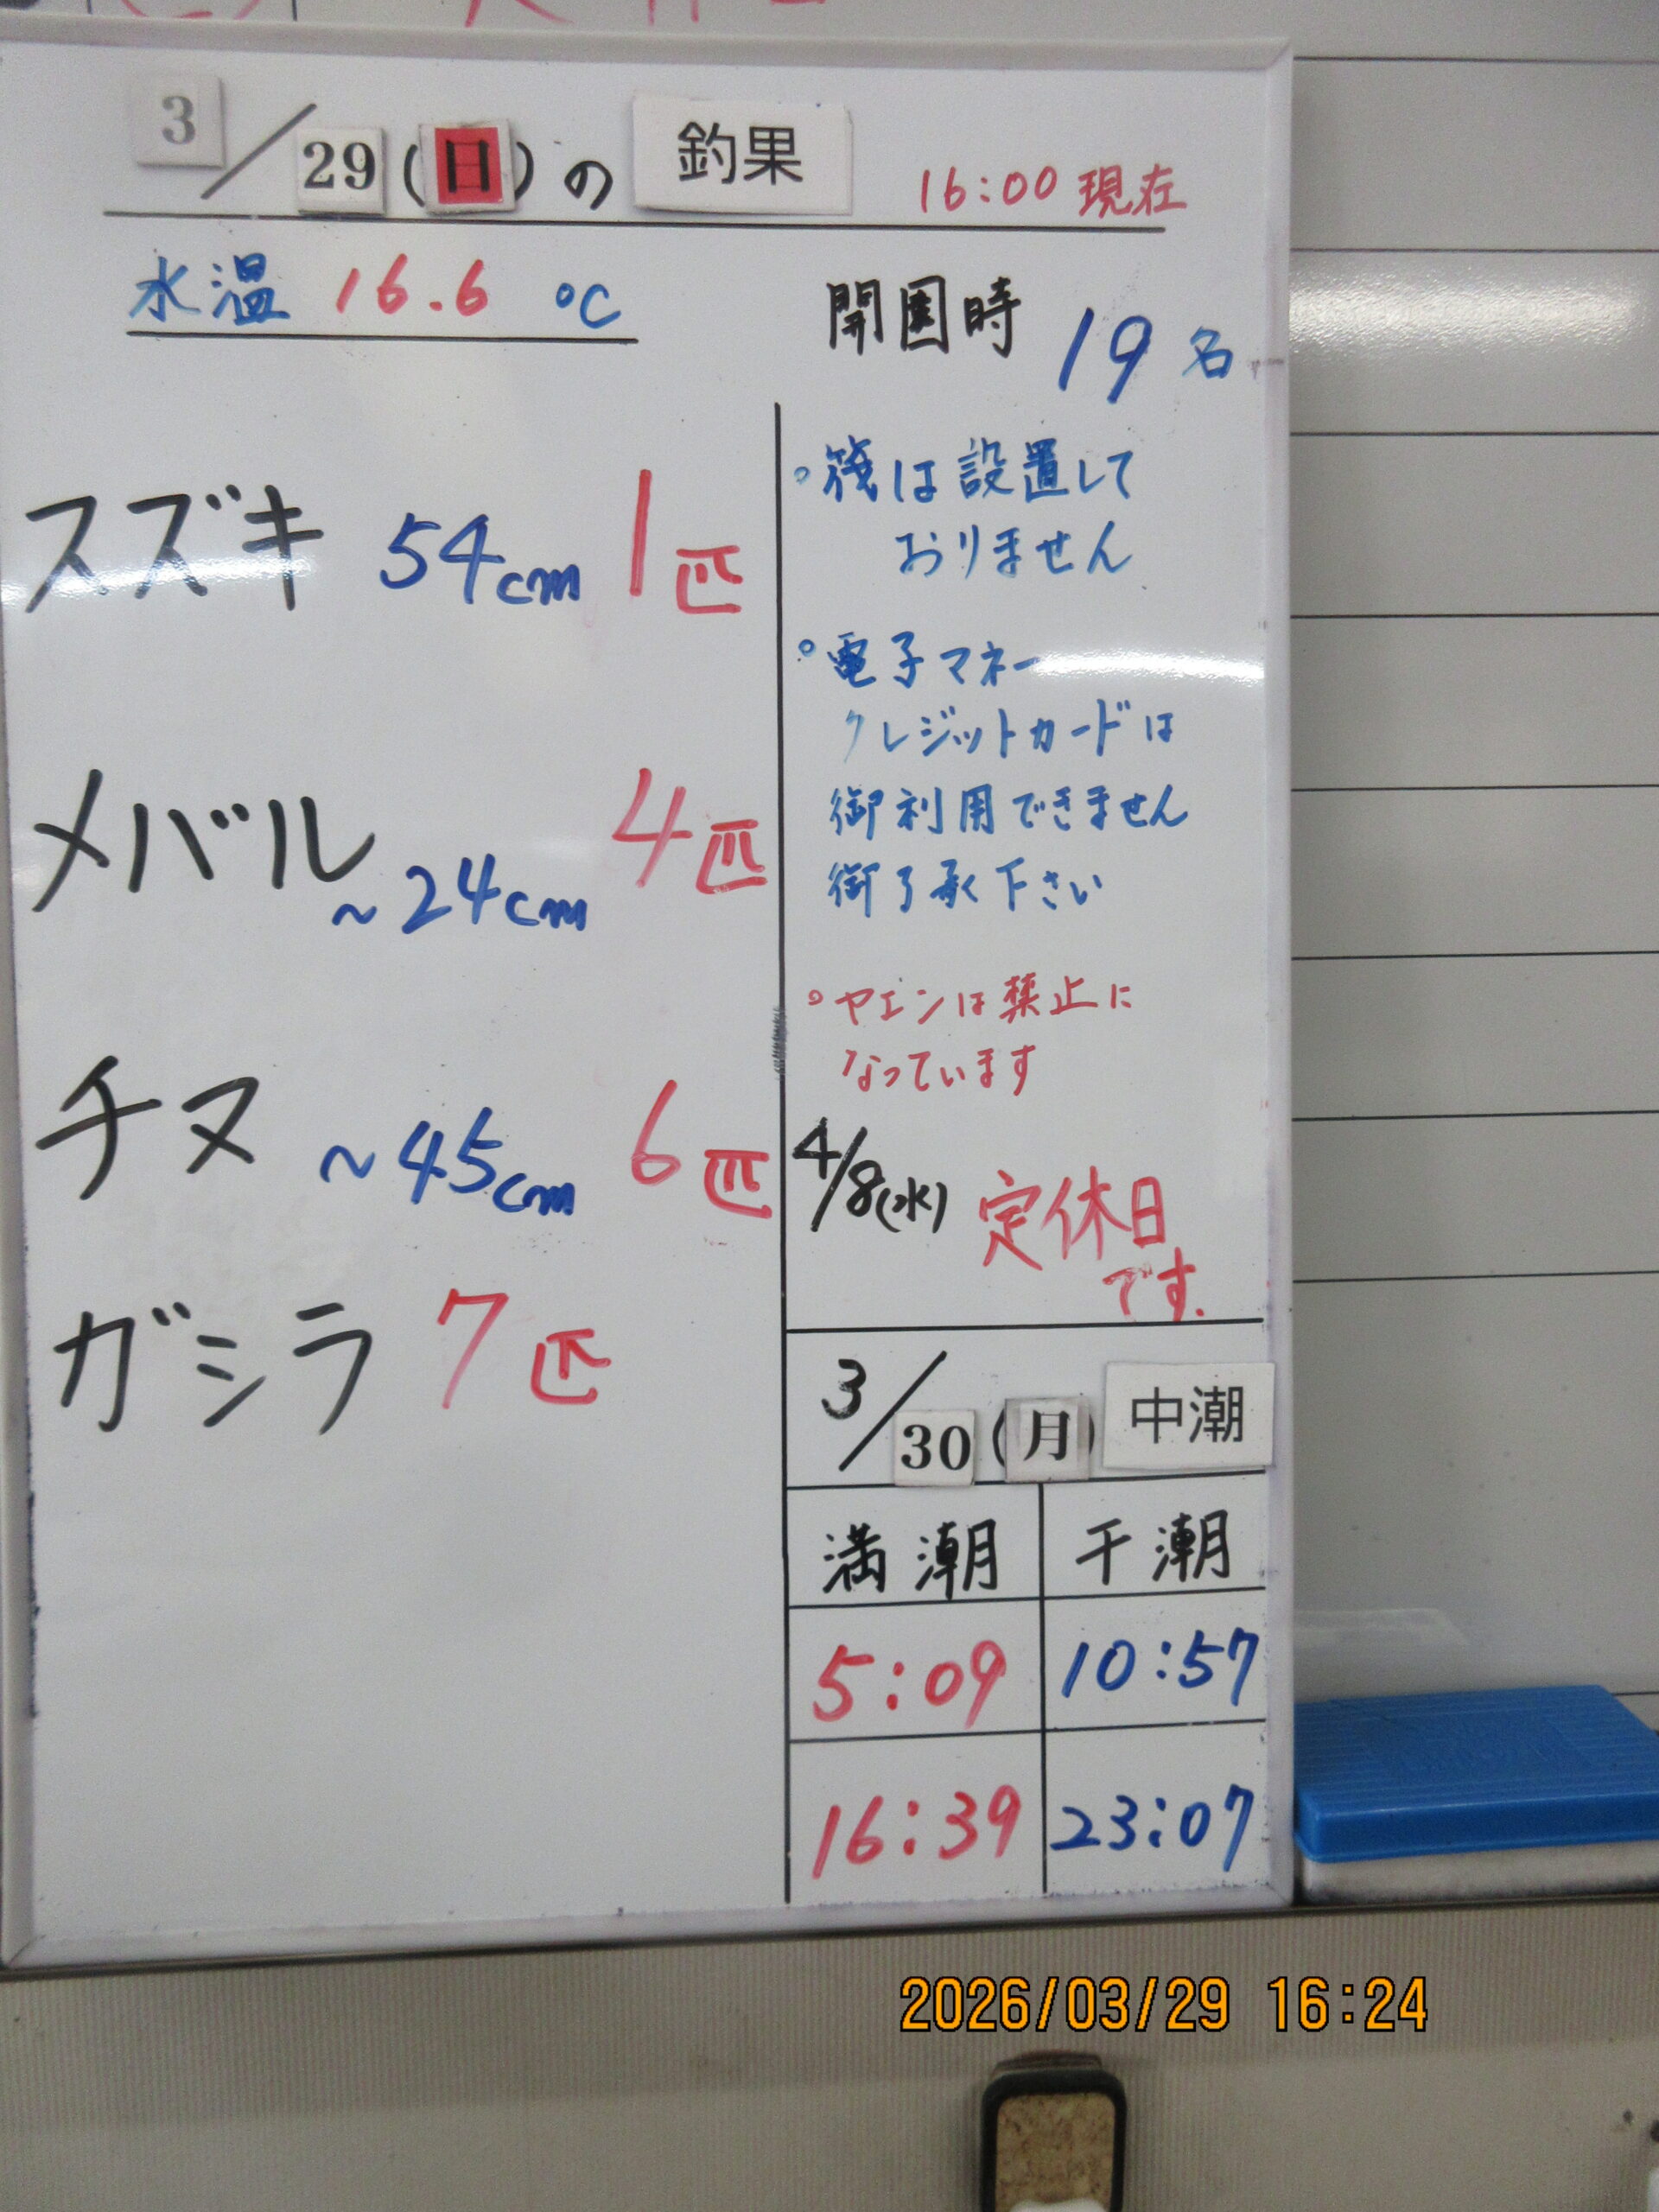 3/29(日)の 釣果 16:00 現在
水温 16.6 ℃
開園時 19名
スズキ 54cm 1匹
メバル ~24cm 4匹
チヌ ~45cm 6匹
ガシラ 7匹
。筏は設置して
おりません
。電子マネー
クレジットカードは
御利用できません
御了承下さい
。ヤエンは禁止に
なっています
4/8(水) 定休日
です.
3/30(月) 中潮
満潮 干潮
5:09 10:57
16:39 23:07
2026/03/29 16:24